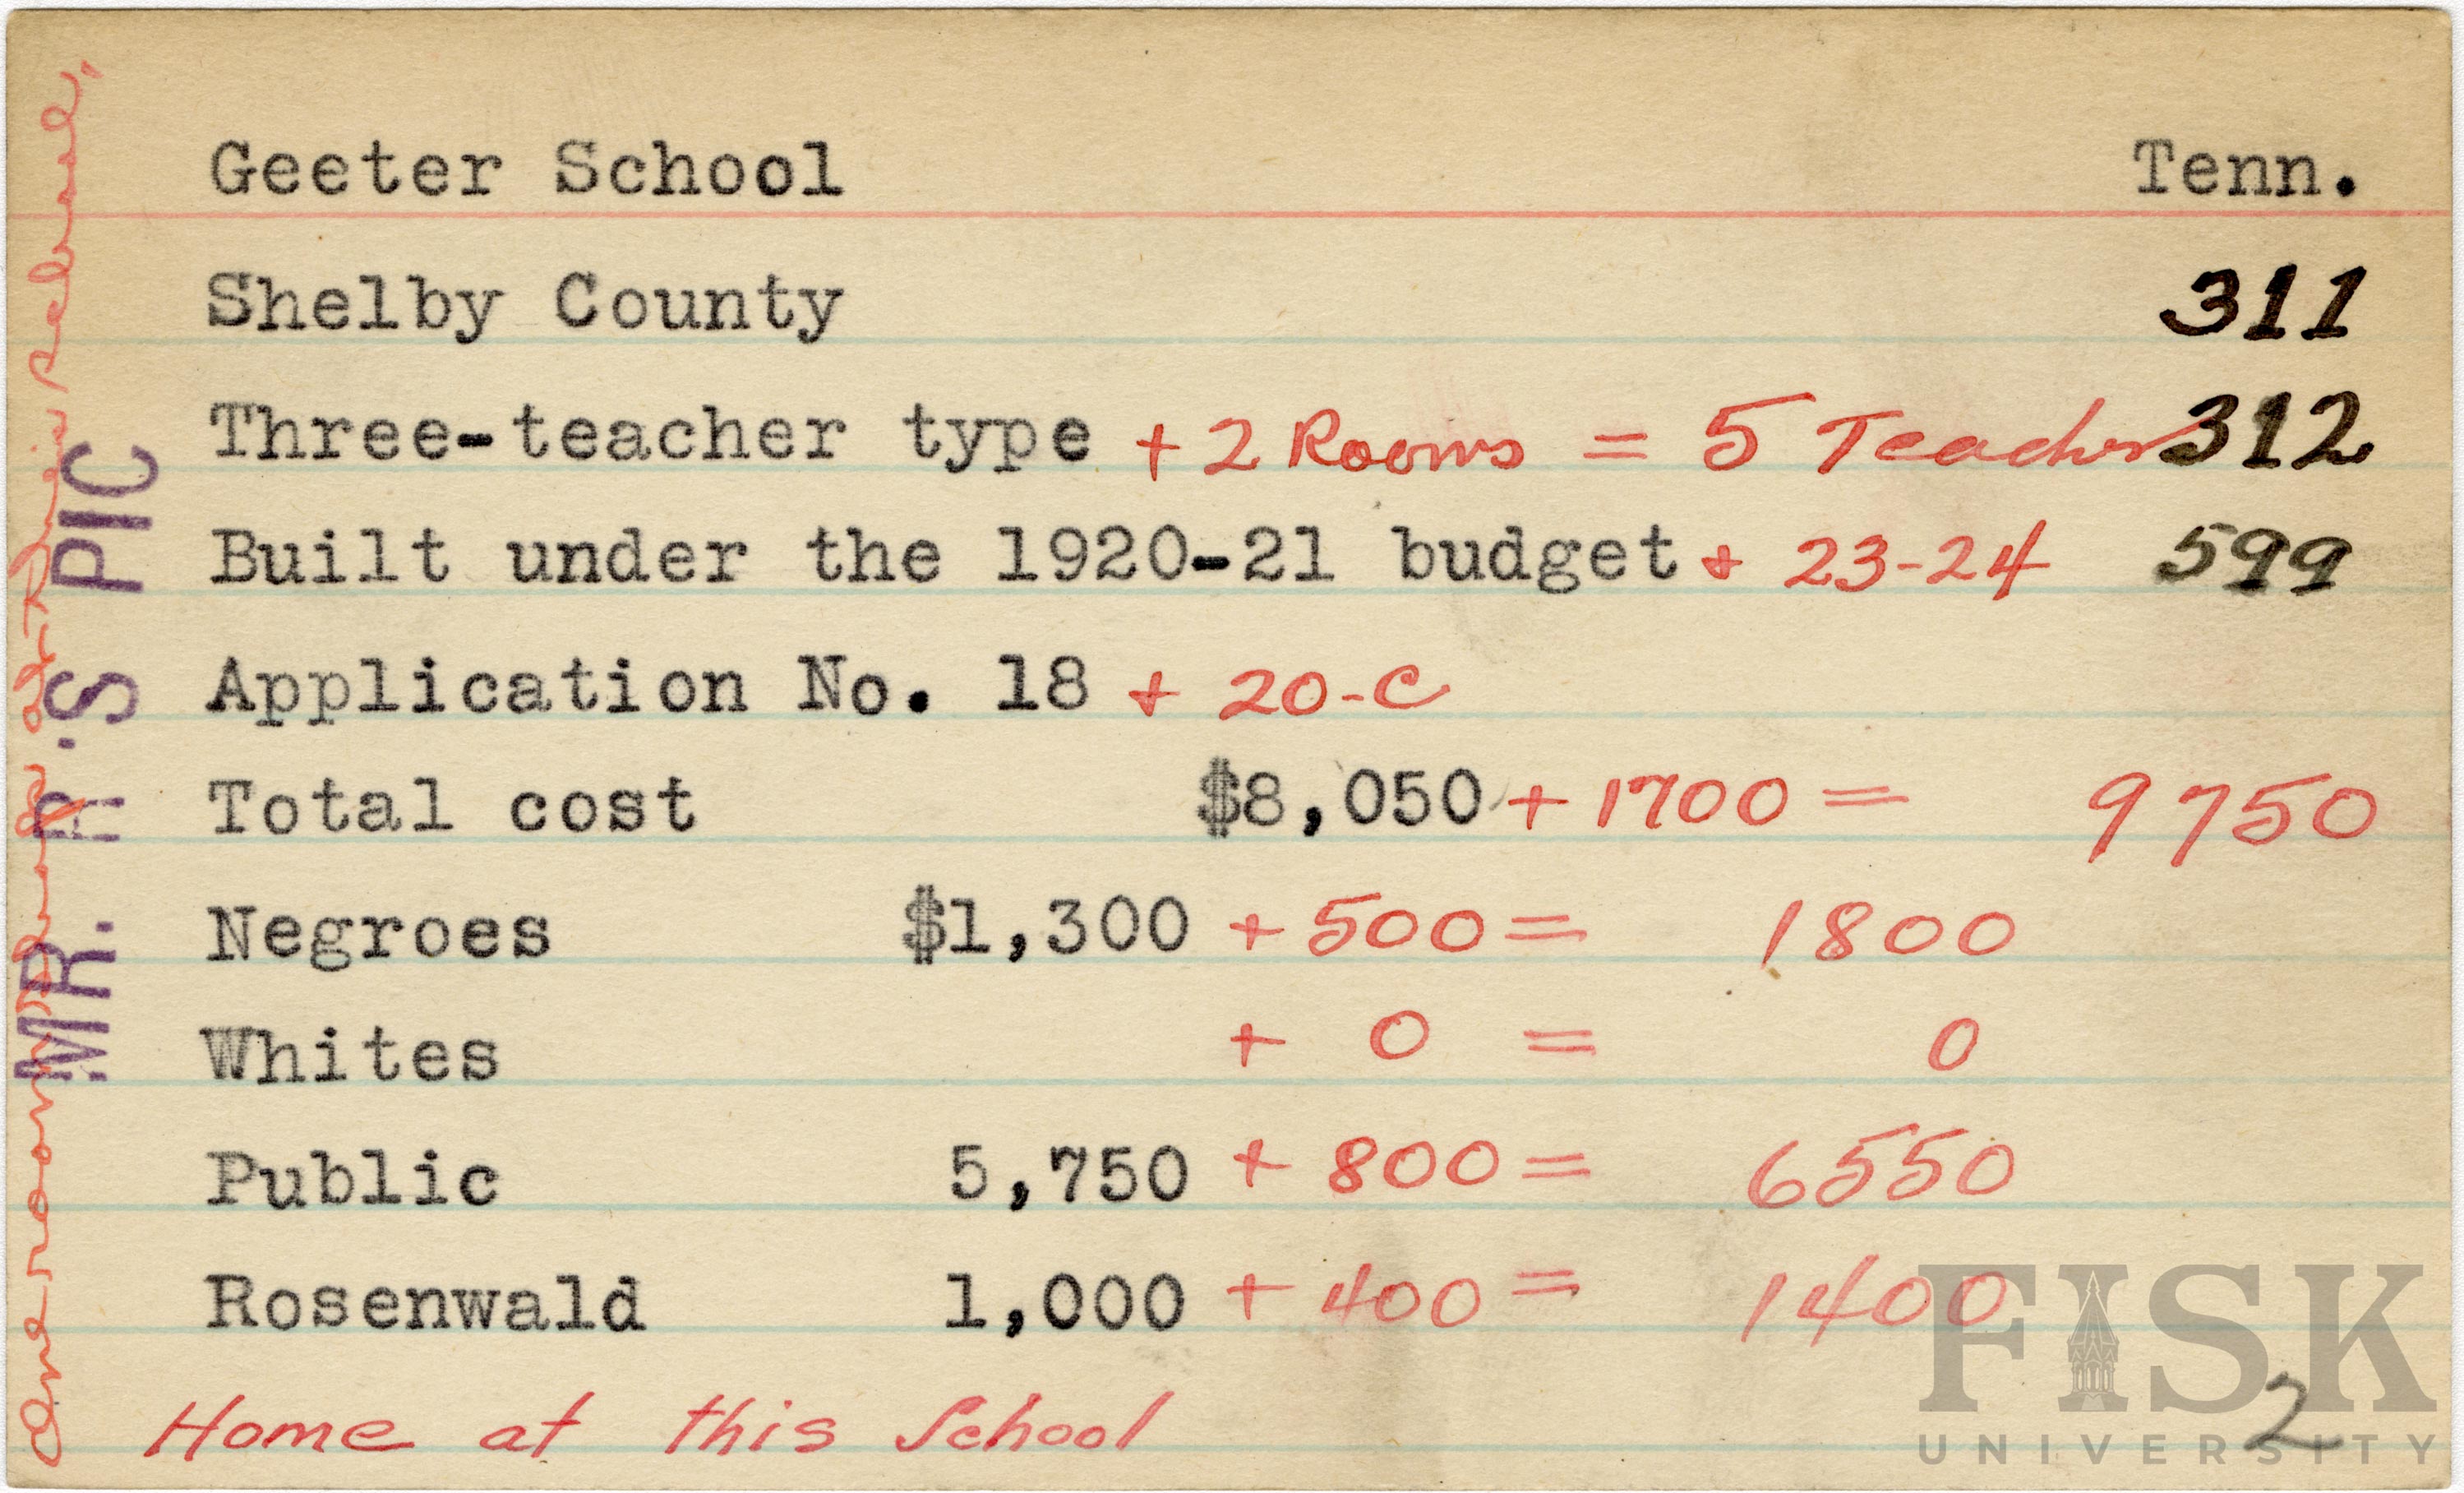 Geeter School Tenn.
Shelby County 311
Three-teacher type + 2 Rooms = 5 Teacher 312
Built under the 1920-21 budget + 23-24 599
Application No. 18 + 20-C
Total cost $8,050 + 1700 = 9750
Negroes $1,300 + 500 = 1800
Whites + 0 = 0
Public 5,750 + 800 = 6550
Rosenwald 1,000 + 400 = 1400
Home at this School
2
MR. R. S PIC
One room shop at this school.
FISK
UNIVERSITY